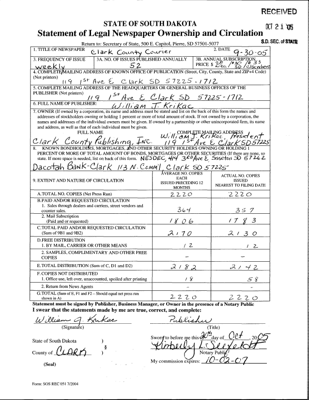 RECEIVED
OCT 21 '05
S.D. SEC. OF STATE
STATE OF SOUTH DAKOTA
Statement of Legal Newspaper Ownership and Circulation
Return to: Secretary of State, 500 E. Capitol, Pierre, SD 57501-5077
1. TITLE OF NEWSPAPER Clark County Courier
2. DATE 9-30-05
3. FREQUENCY OF ISSUE weekly
3A. NO. OF ISSUES PUBLISHED ANNUALLY 52
3B. ANNUAL SUBSCRIPTION PRICE
4. COMPLETE MAILING ADDRESS OF KNOWN OFFICE OF PUBLICATION (Street, City, County, State and ZIP+4 Code) (Not printers)
119 1st Ave E Clark SD 57225-1712
5. COMPLETE MAILING ADDRESS OF THE HEADQUARTERS OR GENERAL BUSINESS OFFICES OF THE PUBLISHER (Not printer)
119 1st Ave E Clark SD 57225-1712
6. FULL NAME OF PUBLISHER: William J. Krikac
7. OWNER (If owned by a corporation, its name and address must be stated and
addresses of stockholders owning or holding 1 percent or more of total amount of stock. If not owned by a corporation, the
names and addresses of the individual owners must be given. If owned by a partnership or other unincorporated firm, its name
and address, as well as that of each individual must be given.
COMPLETE MAILING ADDRESS
William J. Krikac, President
Clark County Publishing, Inc Clark SD 57225
Dacotah Bank-Clark 113 N. Clark SD 57225
9. EXTENT AND NATURE OF CIRCULATION
AVERAGE NO. COPIES EACH ISSUED PRECEDING 12 MONTHS
ACTUAL NO. COPIES ISSUED NEAREST TO FILING DATE
A. TOTAL NO. COPIES (Net Press Run) 2220 2220
B. PAID AND/OR REQUESTED CIRCULATION
1. Sales through dealers and carriers, street vendors and counter sales. 364 357
2. Mail Subscription (Paid and/or requested) 1806 1783
C. TOTAL PAID AND/OR REQUESTED CIRCULATION (Sum of 9B1 and 9B2) 2170 2130
D. FREE DISTRIBUTION
1. BY MAIL, CARRIER OR OTHER MEANS 12 12
2. SAMPLES, COMPLIMENTARY AND OTHER FREE COPIES - -
E. TOTAL DISTRIBUTION (Sum of C, D1 and D2) 2182 2142
F. COPIES NOT DISTRIBUTED
1. Office use, left over, unaccounted, spoiled after printing 18 58
2. Return from News Agents - -
2220 2220
Statement must be signed by Publisher, Business Manager, or Owner in the presence of a Notary Public
I swear that the statements made by me are true, correct, and complete:
William J Krikac Publisher
(Signature) (Title)
State of South Dakota )
County of CLARK )
(Seal)
Sworn to before me this day of Oct 2005
Notary Public
My commission expires: 10-02-07
Form: SOS REC 051 7/2004